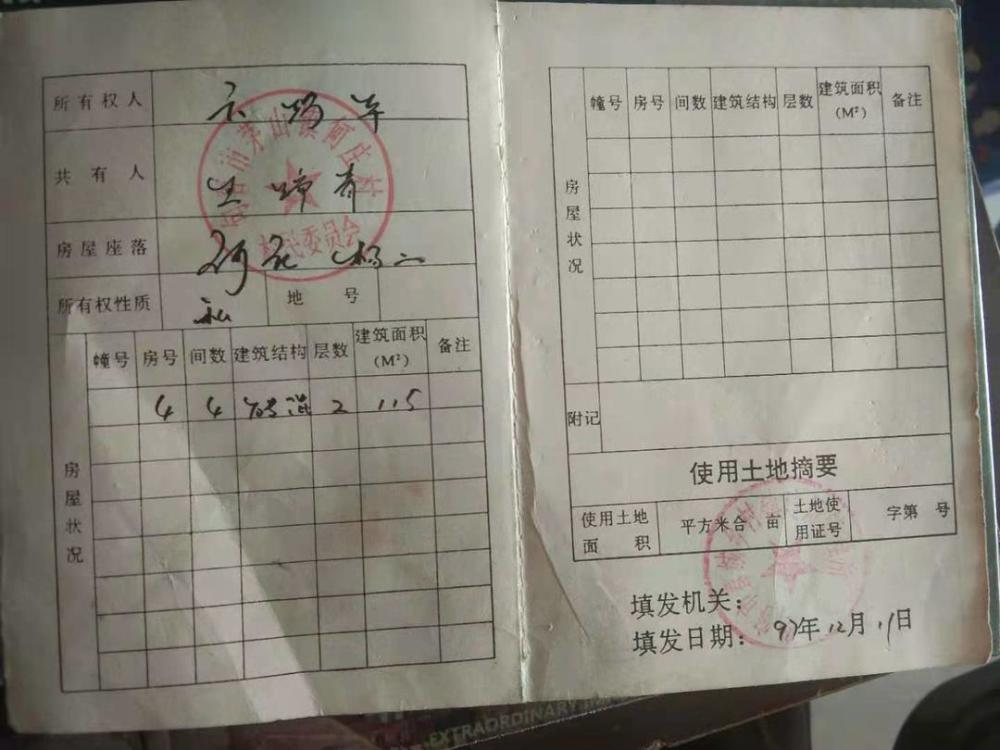 所有权人
共有人
房屋座落
所有权性质 私 地号
房屋状况
幢号 房号 间数 建筑结构 层数 建筑面积(M²) 备注
4 4 砖混 2 115
句容市茅山镇何庄村
村民委员会
幢号 房号 间数 建筑结构 层数 建筑面积(M²) 备注
房屋状况
附记
使用土地摘要
使用土地面积 平方米合 亩 土地使用证号 字第 号
填发机关:
填发日期: 97年12月11日
EXTRAORDINARY